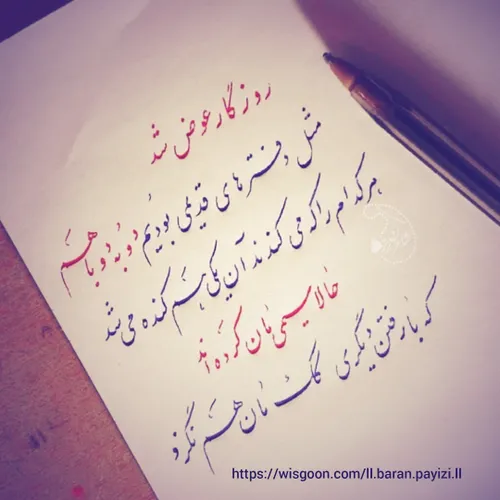 روزگار عوض شد
مثل دفترهای قدیمی بودیم دو به دو با هم
هرکدام را که می کندند آن یکی هم کنده می شد
حالا سیمی مان کرده اند
که با رفتن دیگری کک مان هم نگزد
https://wisgoon.com/ll.baran.payizi.ll